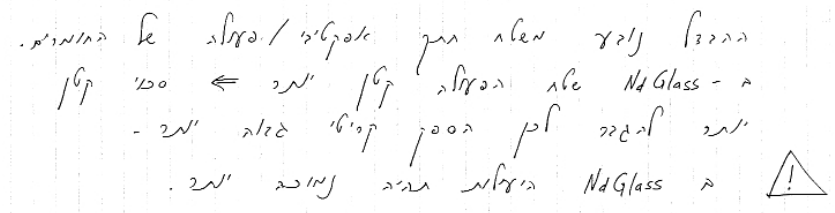 ההבדל נובע משטח חתך אפקטיבי / פעולה של החומרים.
ב - NdGlass שטח הפעולה קטן יותר ⇐ סיכוי קטן
יותר להגבר לכן הספק קריטי גבוה יותר -
ב NdGlass היעילות תהיה נמוכה יותר.
!